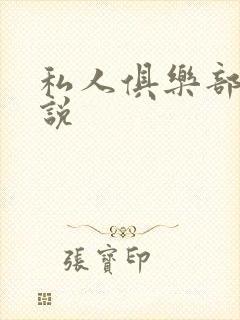 私人俱樂部
說
張寶印